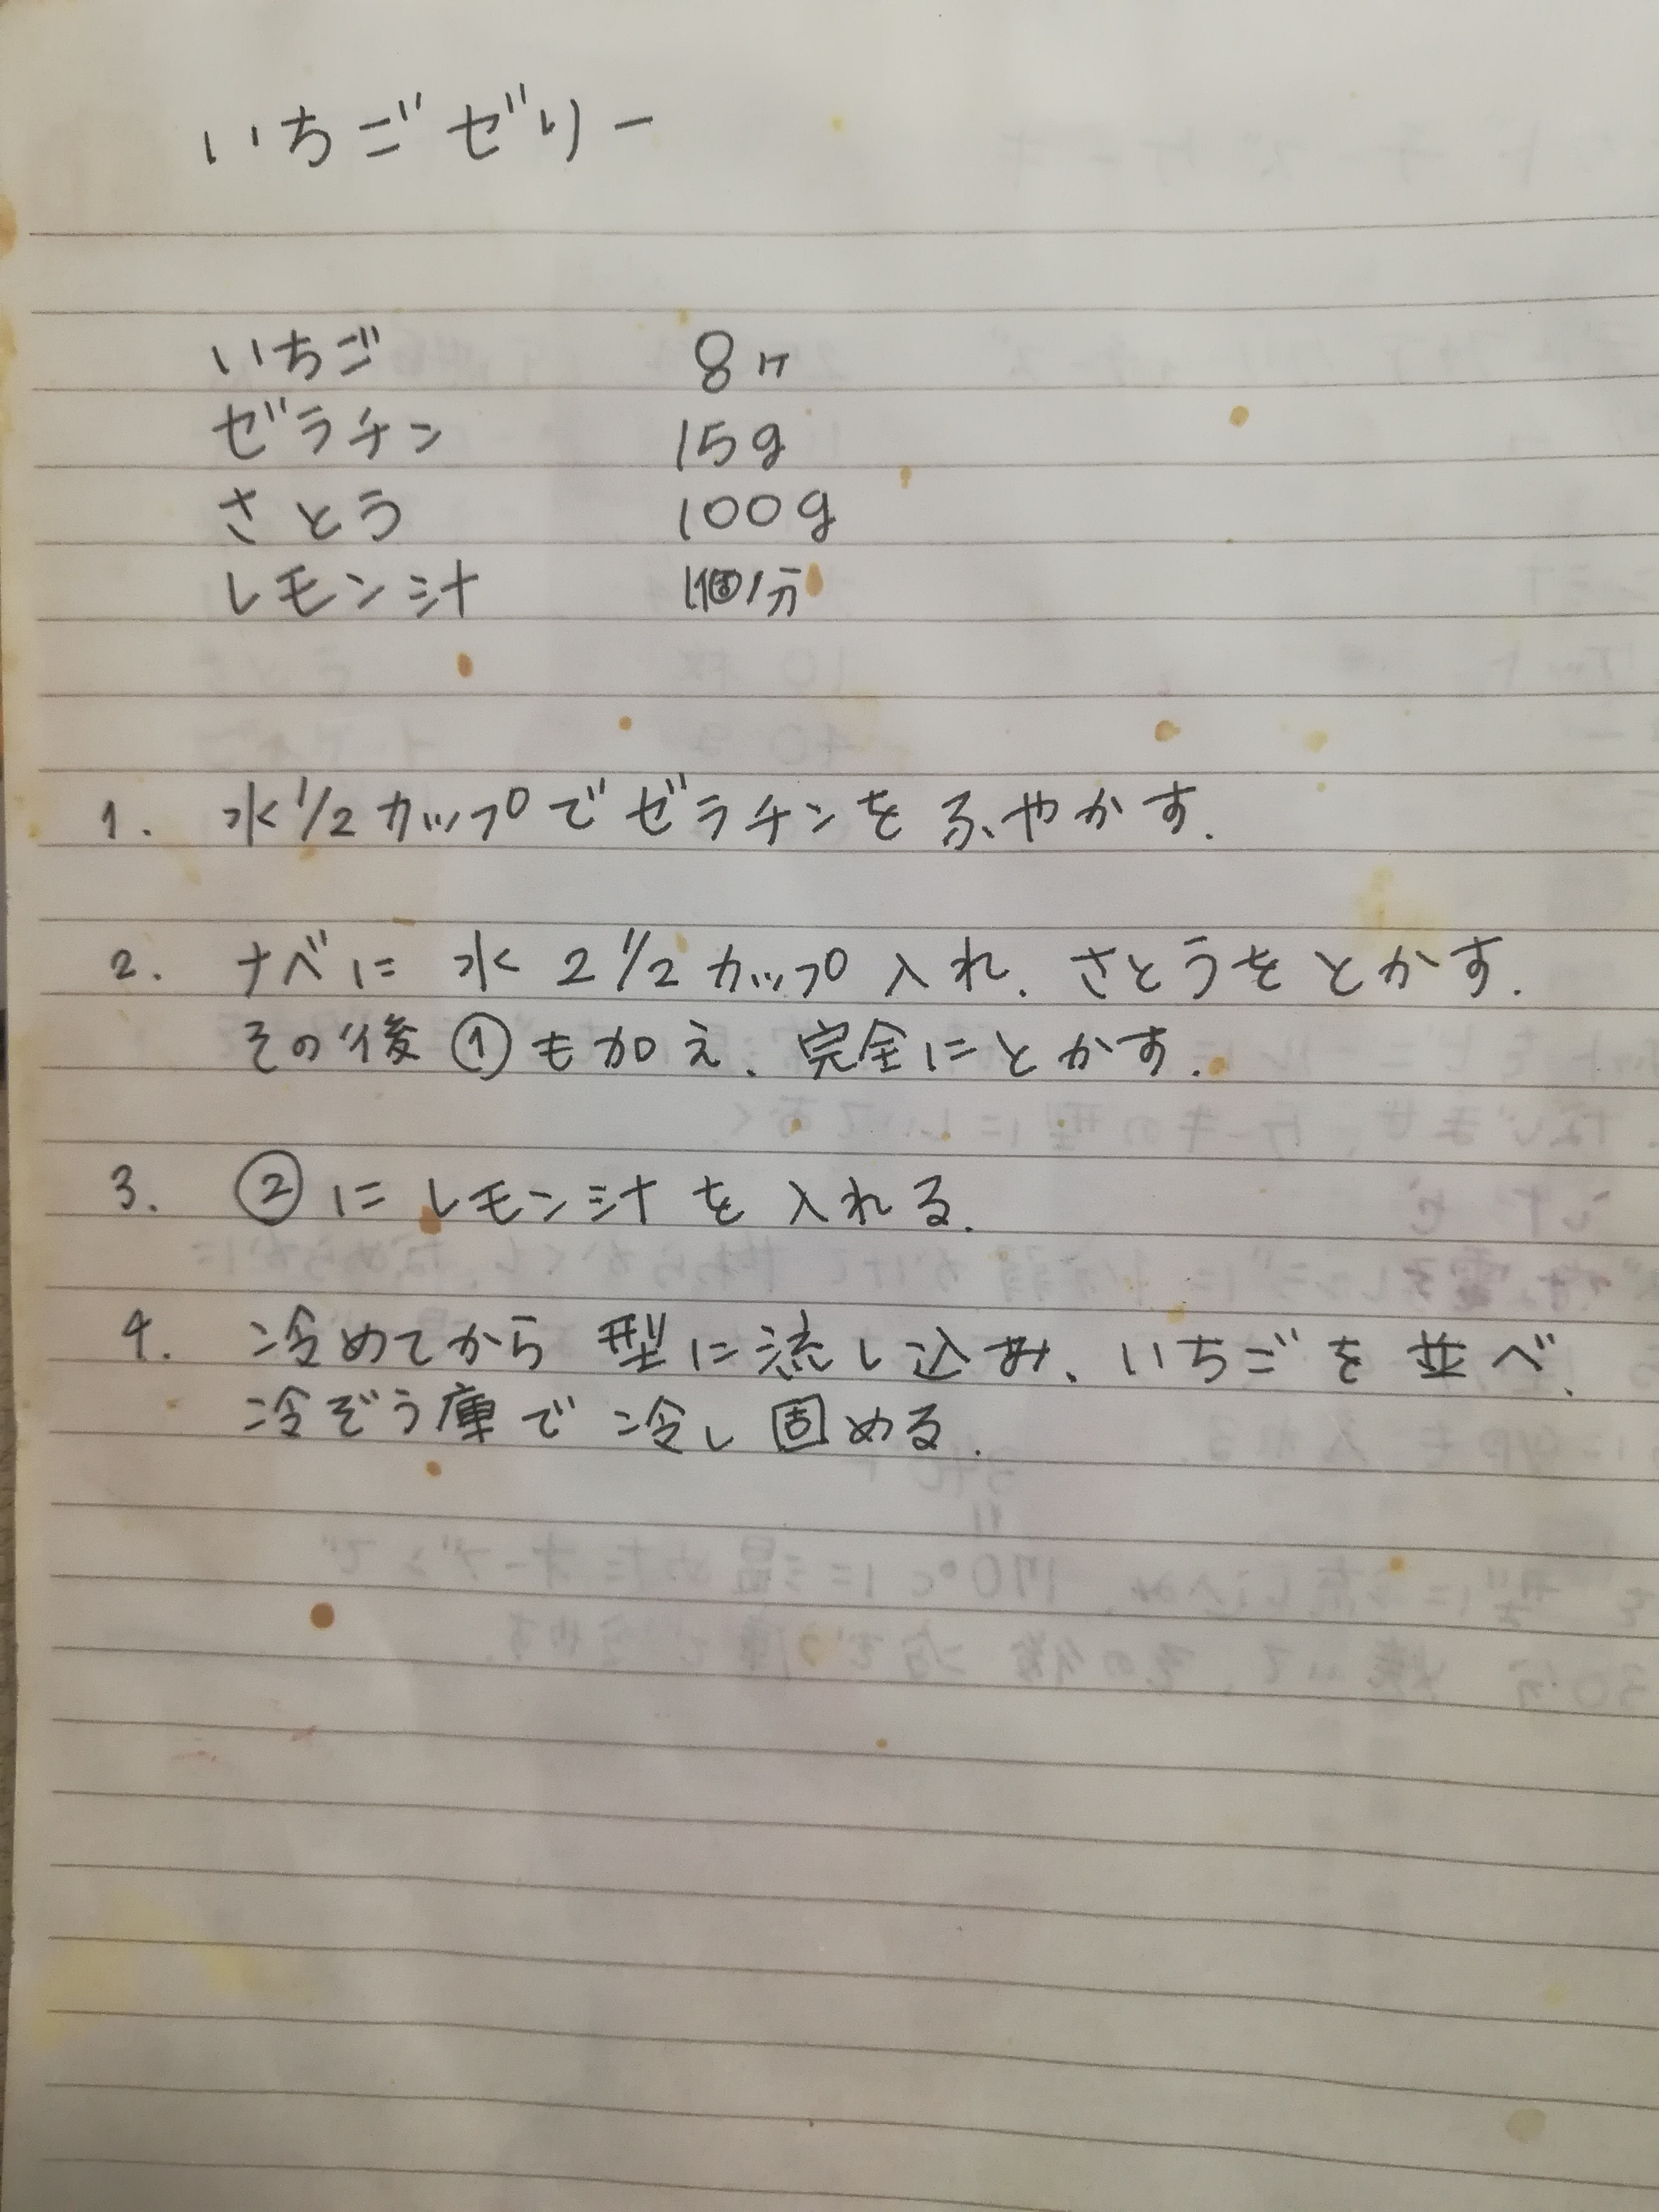 いちごゼリー
いちご 8ヶ
ゼラチン 15g
さとう 100g
レモン汁 1個分
1. 水1/2カップでゼラチンをふやかす.
2. ナベに 水 2 1/2カップ 入れ、さとうをとかす.
その後①も加え、完全にとかす.
3. ②にレモン汁を入れる.
4. 冷めてから 型に流し込み、いちごを並べ、
冷ぞう庫で冷し固める.